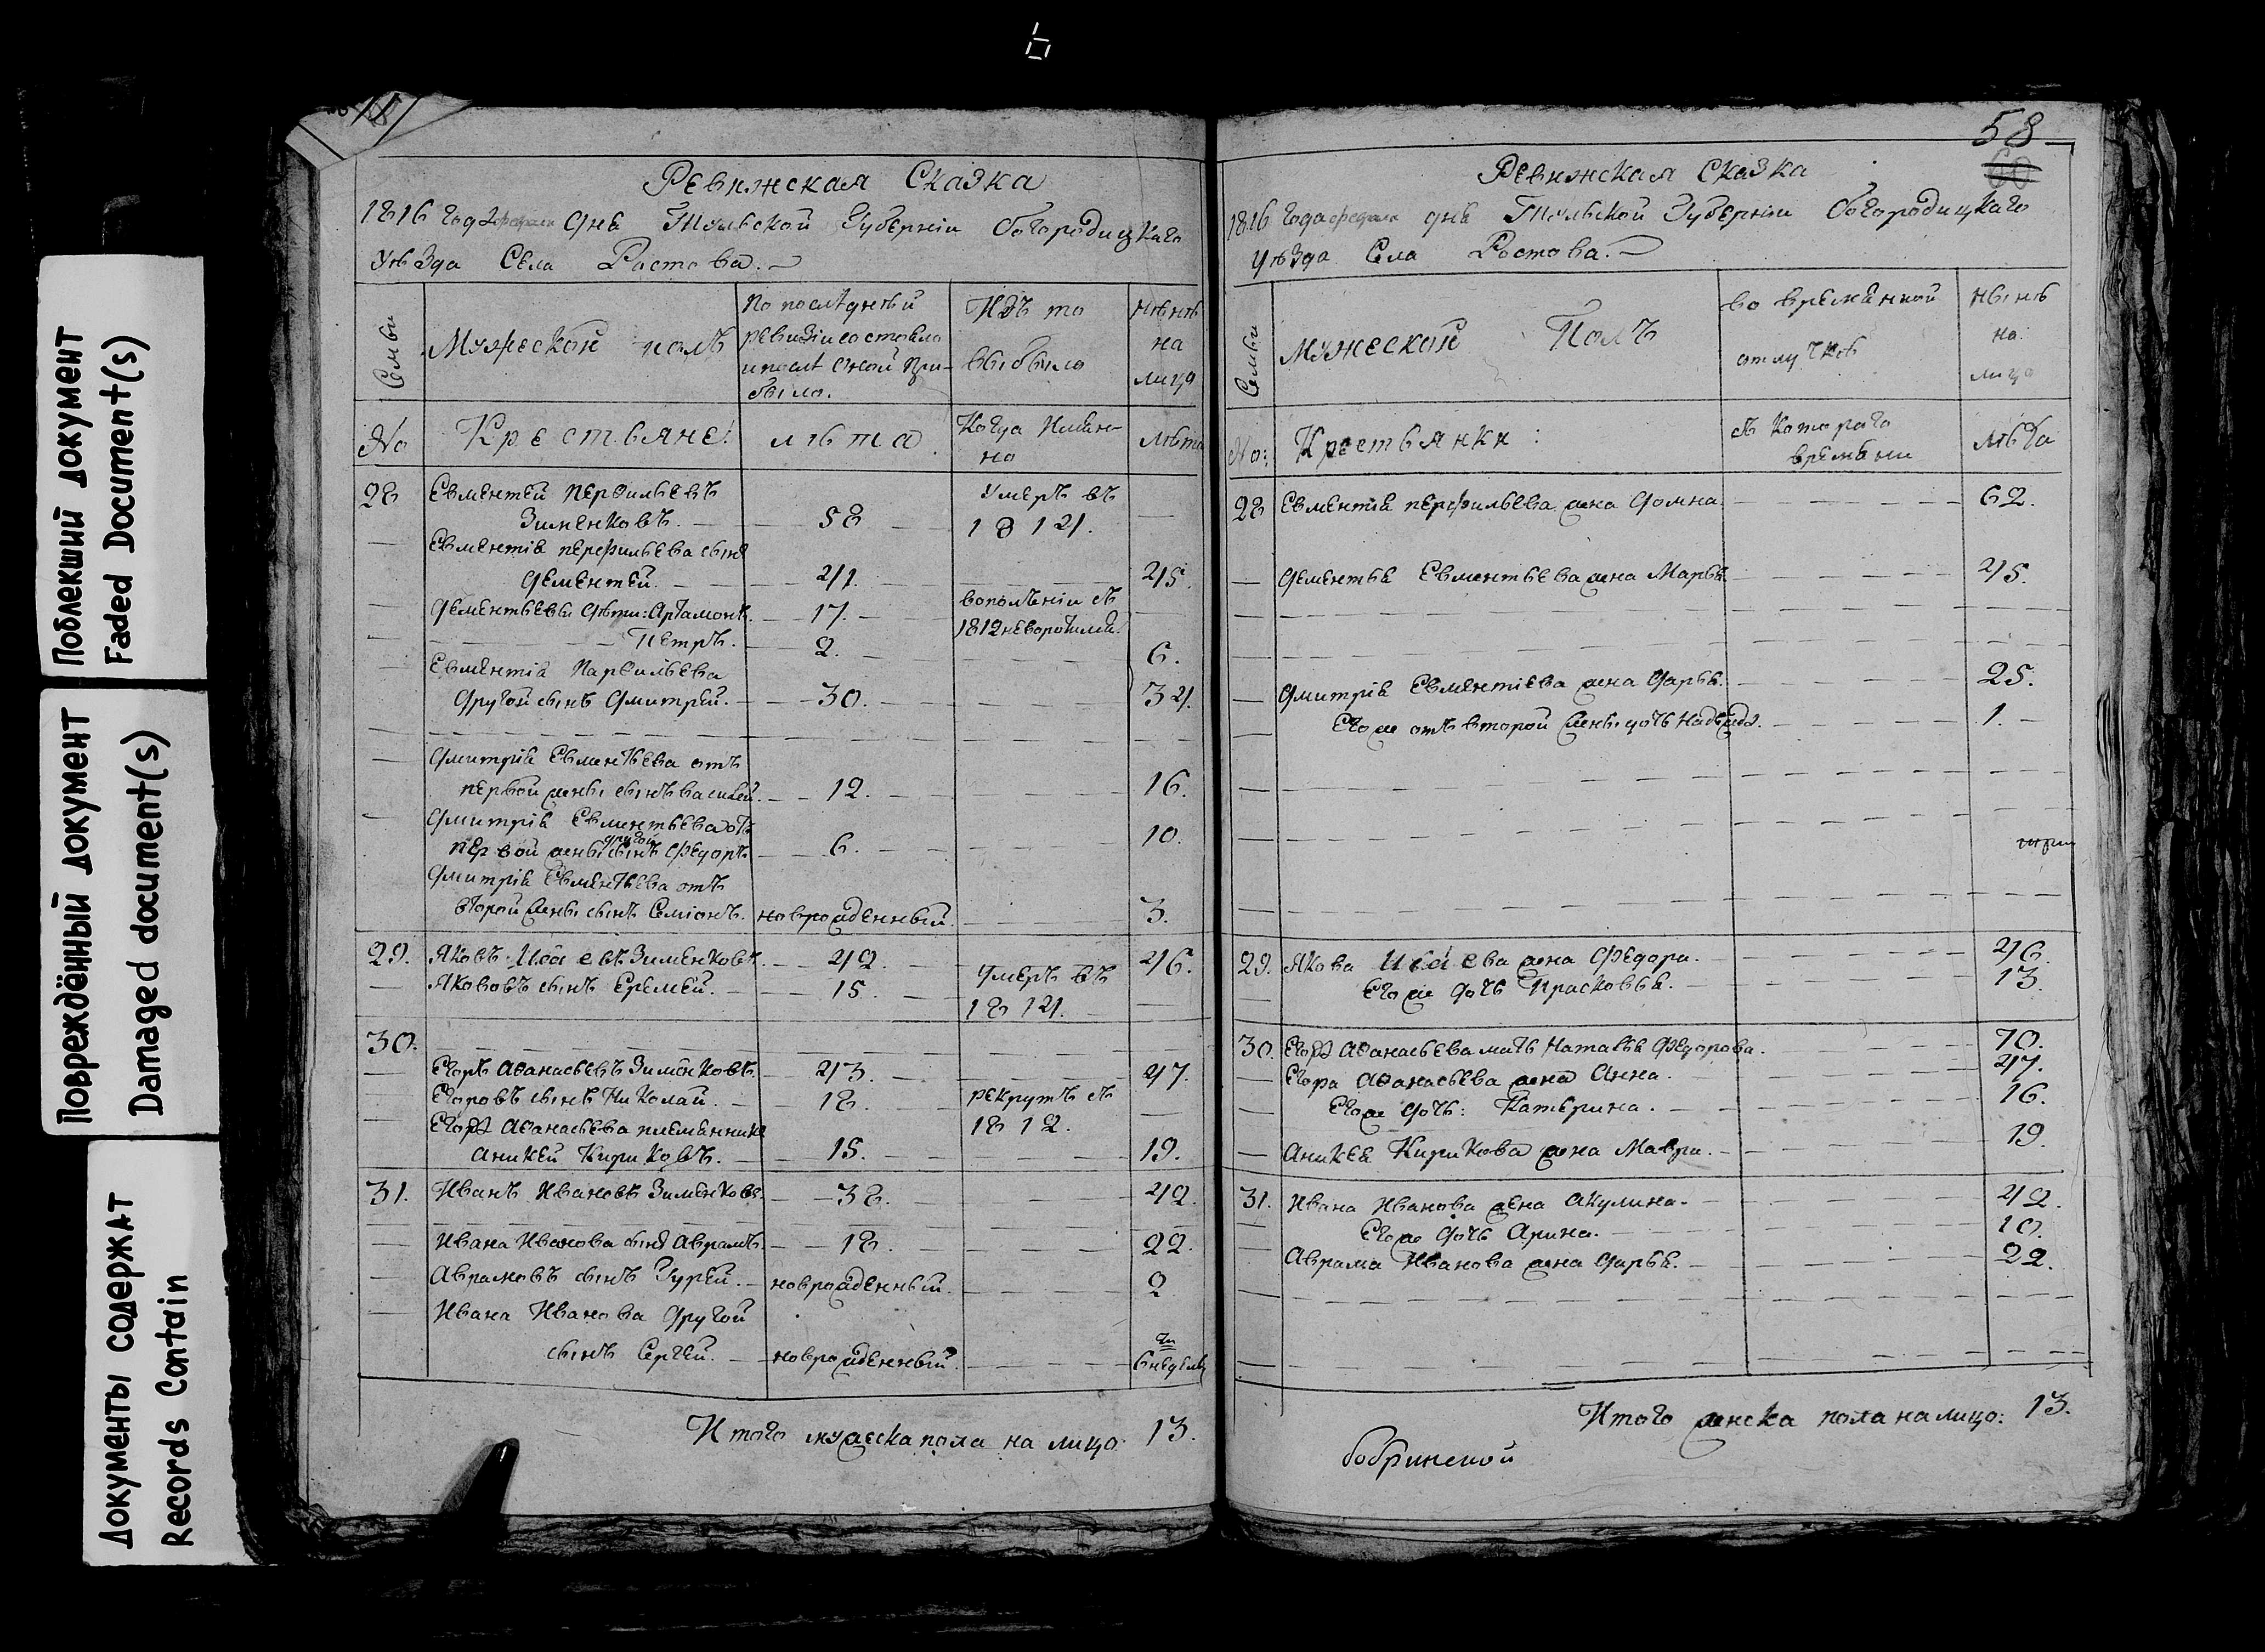 Поблекший документ
Faded Document(s)
Повреждённый документ
Damaged document(s)
Документы содержат
Records Contain
Ревижская Сказка
1816 года февраля дня Тульской Губерніи Богородицкаго
Уѣзда Села Ростова.
Семьи
Мужеской полъ
По послѣдней
ревизіи состояло
и послѣ оной при-
было.
Изъ то
выбыло
Нынѣ
на
лицо
No
Крестьяне:
лѣта
Когда Имян-
но
лѣта
28 Евментей Перѳильевъ
Зименковъ. 58 Умеръ въ
1814.
Евментія перфильева сынъ
Дементей. 41. 45.
Дементьевы дѣти: Артамонъ. 17. вополченіи съ
1812 неворотился.
Петръ. 2. 6.
Евментія Парѳильева
другой сынъ Дмитрей. 30. 34.
Дмитрія Евментьева отъ
первой жены сынъ василей. 12. 16.
Дмитрія Евментьева отъ
первой жены другой сынъ Федоръ. 6. 10.
Дмитрія Евментьева отъ
второй жены сынъ Семіонъ. новрожденный. 3.
29. Яковъ Исаевъ Зименковъ. 42. 46.
Яковлвъ сынъ Еремей. 15. Умеръ въ
1814.
30.
Егоръ Аѳанасьевъ Зименковъ. 43. 47.
Егоровъ сынъ Николай. 18. рекрутъ съ
1812.
Егора Аѳанасьева племянникъ
Аникей Кириковъ. 15. 19.
31. Иванъ Ивановъ Зименковъ. 38. 42.
Ивана Иванова сынъ Аврамъ. 18. 22.
Аврамовъ сынъ Гурей. новрожденный. 2
Ивана Иванова другой
сынъ Сергей. новрожденный. 6 недель
Итого мужеска пола на лицо 13.
58
60
Ревижская Сказка
1816 года февраля дня Тульской Губерніи Богородицкаго
Уѣзда Села Ростова.
Семьи
Мужеской Полъ
во временной
отлучкѣ
нынѣ
на:
лицо
No:
Крестьянки:
съ Котораго
времени
лѣта
28 Евментія перфильева жена Домна. 62.
Дементья Евментьева жена Марья. 45.
Дмитрія Евментіева жена Дарья. 25.
Его же отъ второй жены дочь Надежда. 1.
29. Якова Исаева жена Федора. 46.
Его же дочь Прасковья. 13.
30. Егора Аѳанасьева мать Наталья Федорова. 70.
Егора Аѳанасьева жена Анна. 47.
Его же дочь: Катерина. 16.
Аникея Кирикова жена Мавра. 19.
31. Ивана Иванова жена Акулина. 42.
Его же дочь Арина. 10.
Аврама Иванова жена Дарья. 22.
Итого женска пола на лицо: 13.
бобринской